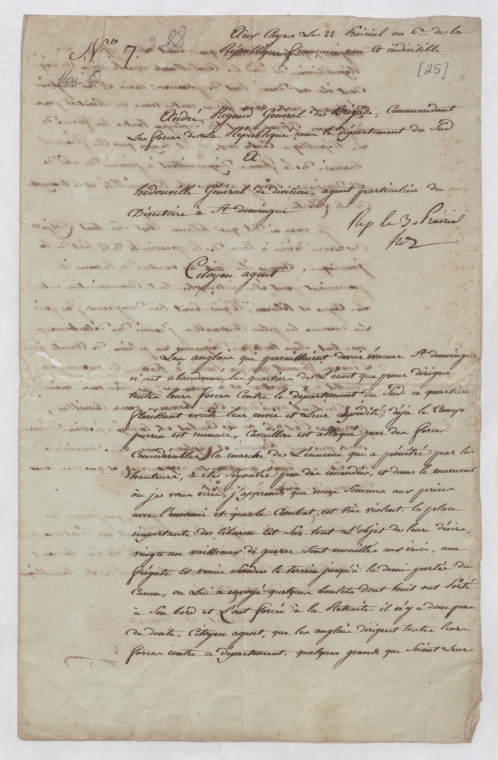 Aux Cayes Le 22 Prairial an 6e de la
Nro 7. 
République française une et indivisible
[25]
André Rigaud Général de Brigade, Commandant
Les forces de La République dans le département du Sud
A
hédouville général de division, agent particulier du
Directoire à St domingue
Rep le 30 Prairial
Citoyen agent
Les anglais qui paraissaient devoir évacuer St domingue,
n'ont abandonné les quartiers de L'ouest que pour diriger
toutes leurs forces Contre le département du Sud ce quartier
florissant excite leur envie et leur cupidité, déjà le Camp
perrin est menacé, Cavaillon est attaqué par des forces
Considérables, la marche de L'ennemi qui a pénétré par les
hauteurs, a été signalée par des incendies, et dans le moment
où je vous écris, j'apprends que nous Sommes aux prises
avec l'ennemi et que le Combat est très violent, la place
importante des tiburon Est Sur tout L'objet de leurs désirs,
vingt un vaisseaux de guerre Sont mouillés aux irois, une
frégate est venue Sonder le terrein jusqu'à la demi portée du
Canon, on Lui a envoyé quelques boulets dont huit ont porté
à Son bord et L'ont forcée à la Retraite. il n'y a donc pas
de doute, Citoyen agent, que les anglais dirigent toutes leurs
forces contre ce département. quelques grands que Soient Leurs